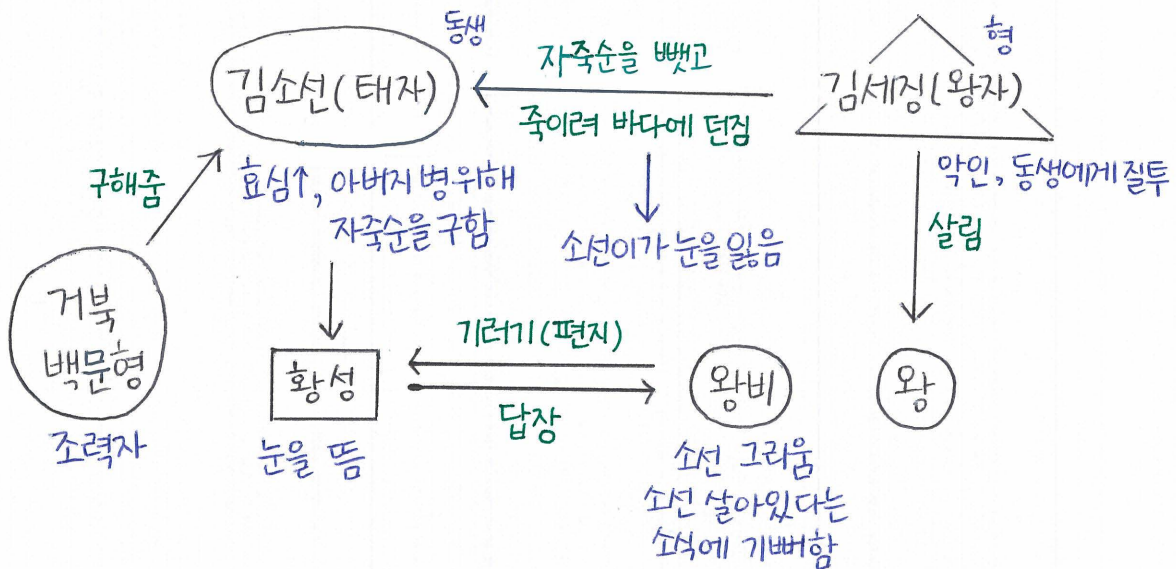 동생
김소선(태자)
자죽순을 뺏고
죽이려 바다에 던짐
형
김세징(왕자)
구해줌
효심↑, 아버지 병 위해
자죽순을 구함
소선이가 눈을 잃음
악인, 동생에게 질투
살림
거북
백문형
조력자
황성
눈을 뜸
기러기(편지)
답장
왕비
소선 그리움
소선 살아있다는
소식에 기뻐함
왕